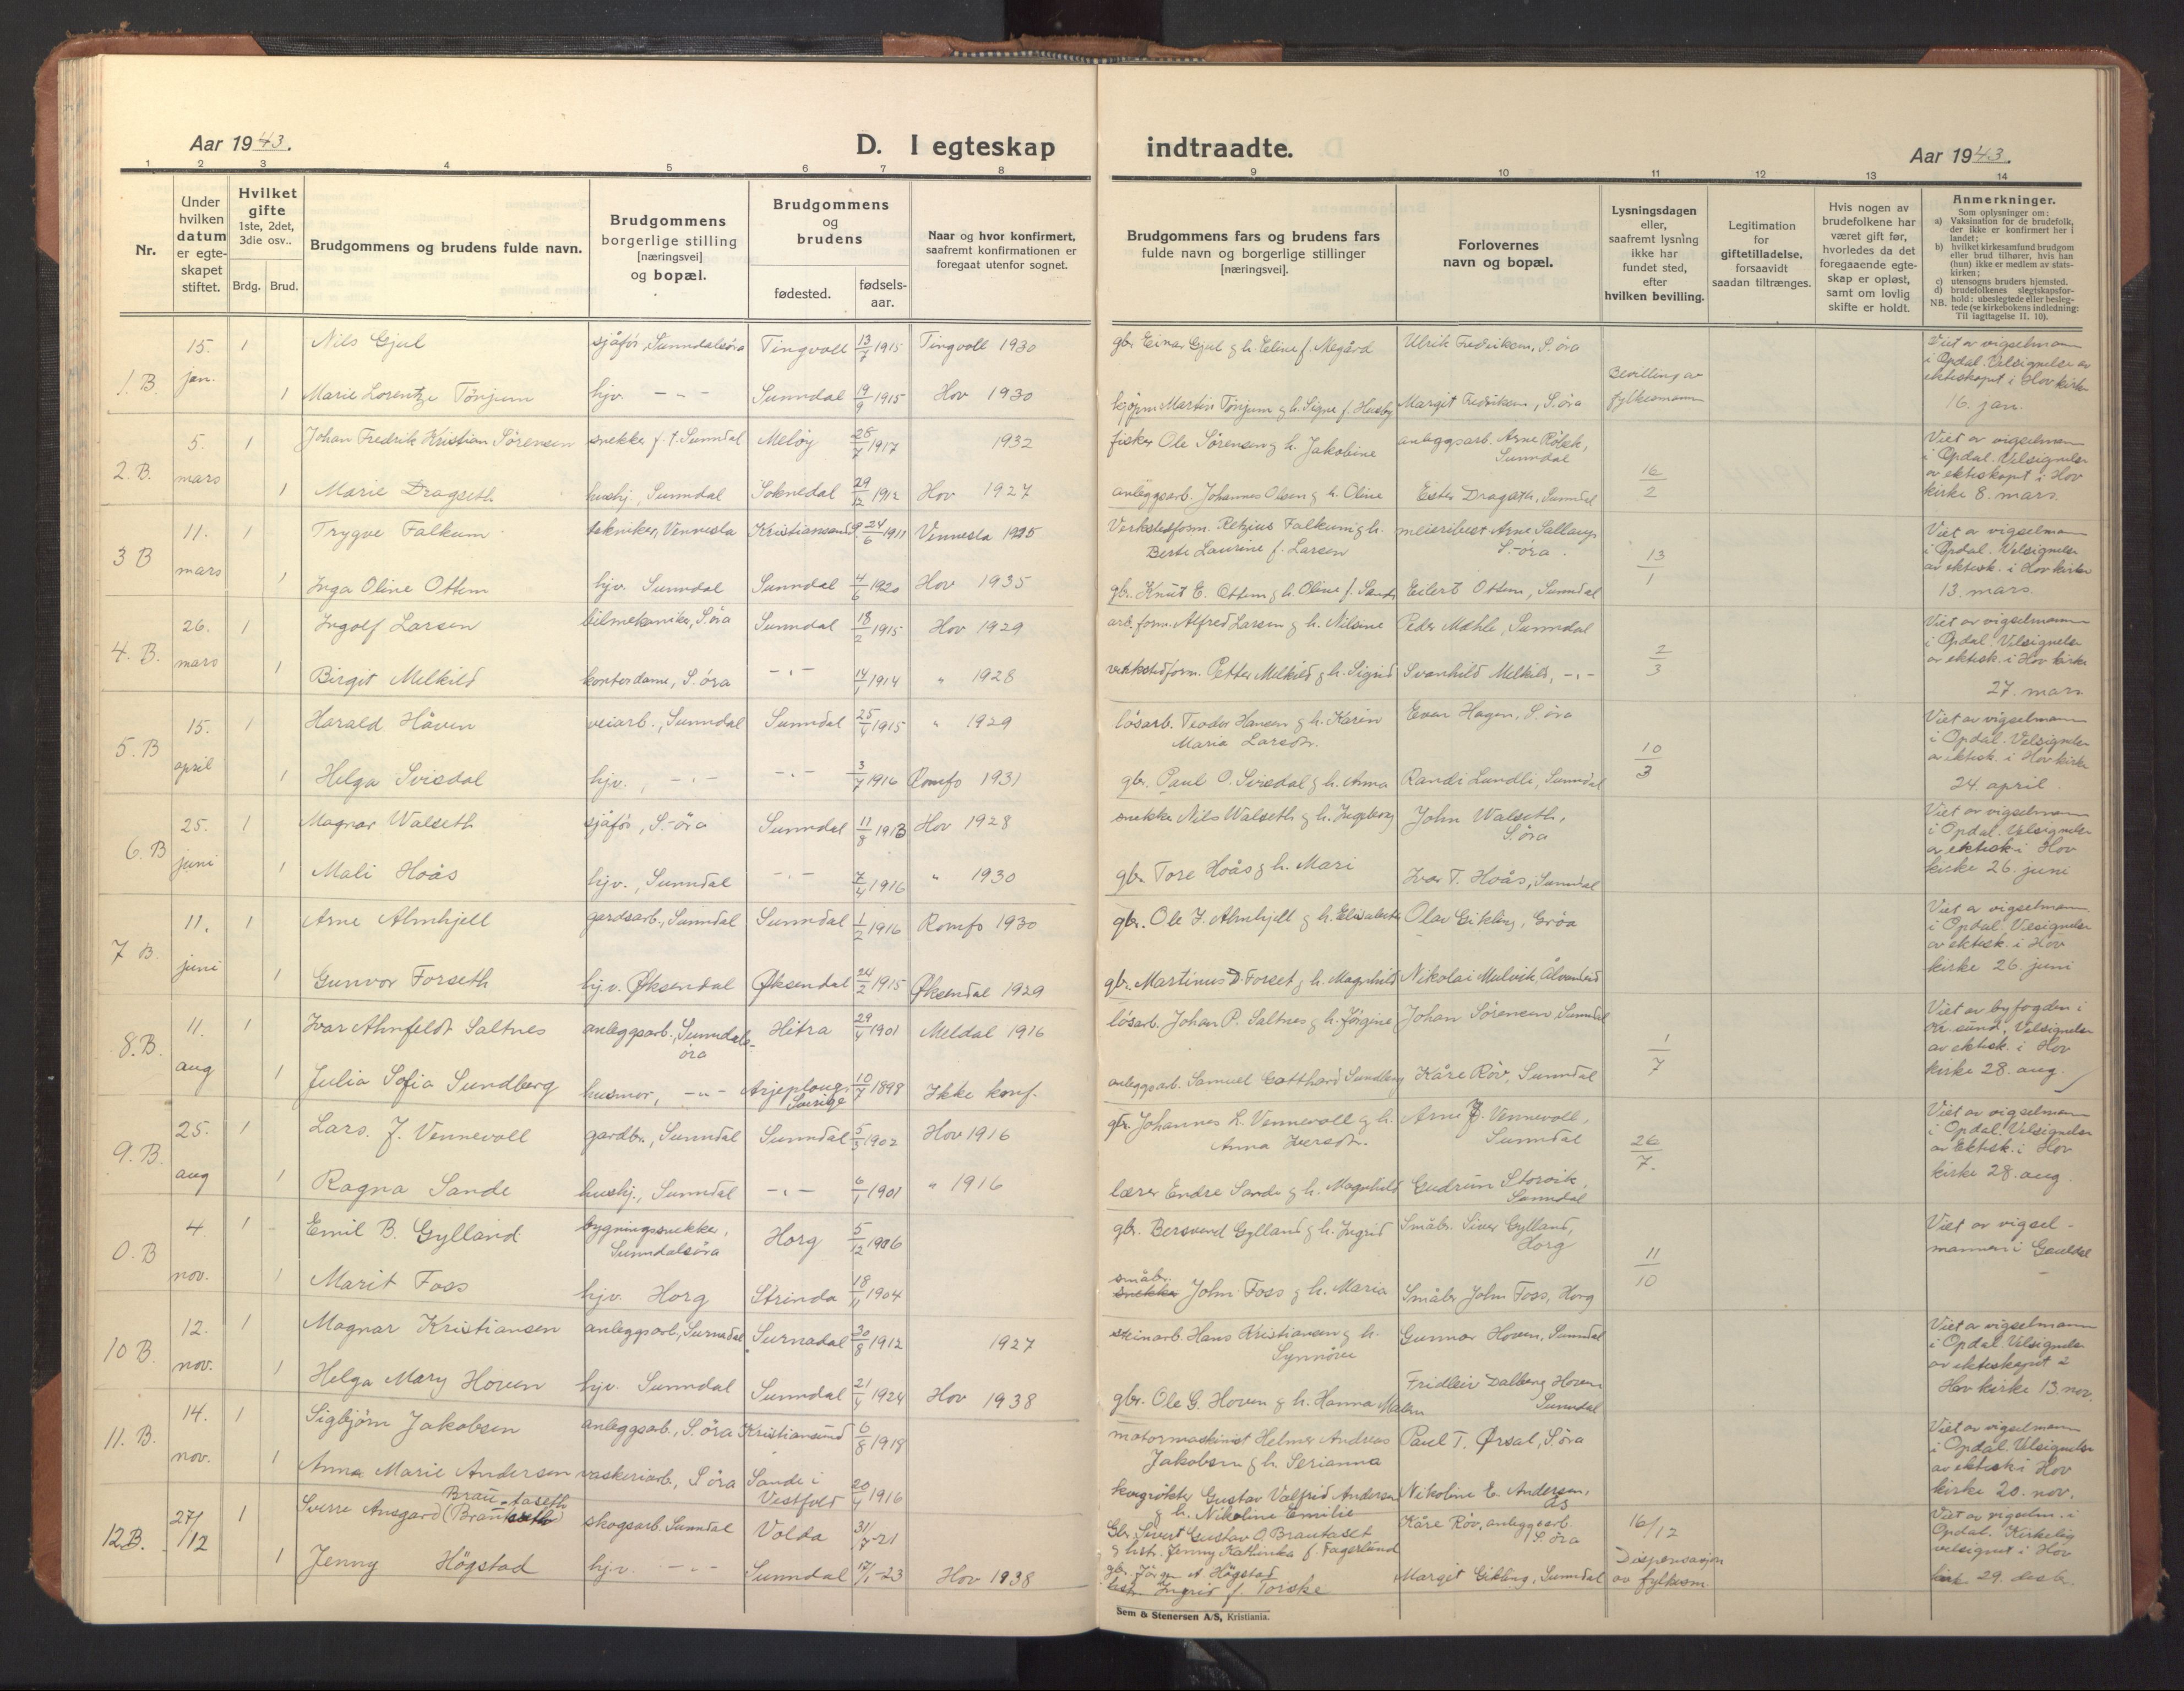 Aar 1943.
D. I egteskap indtraadte.
Aar 1943.
1 2 3 4 5 6 7 8 9 10 11 12 13 14
Nr.
Under hvilken datum er egteskapet stiftet.
Hvilket gifte 1ste, 2det, 3die osv..
Brdg. Brud.
Brudgommens og brudens fulde navn.
Brudgommens borgerlige stilling [næringsvei] og bopæl.
Brudgommens og brudens
fødested.
fødselsaar.
Naar og hvor konfirmert, saafremt konfirmationen er foregaat utenfor sognet.
Brudgommens fars og brudens fars fulde navn og borgerlige stillinger [næringsvei].
Forlovernes navn og bopæl.
Lysningsdagen eller, saafremt lysning ikke har fundet sted, efter hvilken bevilling.
Legitimation for giftetilladelse, forsaavidt saadan tiltrænges.
Hvis nogen av brudefolkene har været gift før, hvorledes da det foregaaende egteskap er opløst, samt om lovlig skifte er holdt.
Anmerkninger.
Som oplysninger om:
a) Vaksination for de brudefolk, der ikke er konfirmert her i landet;
b) hvilket kirkesamfund brudgom eller brud tilhører, hvis han (hun) ikke er medlem av statskirken;
c) utensogns bruders hjemsted.
d) brudefolkenes slegtskapsforhold: ubeslegtede eller beslegtede (se kirkebokens indledning: Til iagttagelse II. 10).
NB.
1. B 15. jan. 1 Nils Gjul sjåfør, Sunndalsöra Tingvoll 13/7 1915 Tingvoll 1930 gbr Einar Gjul g h. Eline f. Megård Ulrik Fredriksen, S. öra Bevilling av fylkesmann Viet av vigselmann i Opdal. Velsignelse av ekteskapet i Hov kirke 16. jan.
1 Marie Lorentze Tönjum hjv. -"- Sunndal 19/9 1915 Hov 1930 kjøpm Martin Tönjum g h. Signe f. Husby Margit Fredriksen, S. öra
2. B. 5. mars 1 Johan Fredrik Kristian Sørensen snekker f. t. Sunndal Meløy 28/7 1917 1932 fisker Ole Sørensen g h. Jakobine anleggsarb. Arne Röbek, Sunndal 16/2 Viet av vigselmann i Opdal. Velsignelse av ekteskapet i Hov kirke 8. mars.
1 Marie Dragseth hushj., Sunndal Soknedal 29/12 1912 Hov 1927 anleggsarb. Johannes Olsen g h. Oline Ester Dragseth, Sunndal
3 B 11. mars 1 Trygve Falkum tekniker, Vennesla Kristiansand S. 24/6 1911 Vennesla 1925 Verkstedform. Retzius Falkum g h. Berte Laurine f. Larsen meieribest Arne S.-öra 13/1 Viet av vigselmann i Opdal. Velsignelse av ektesk. i Hov kirke 13. mars.
1 Inga Oline Ottem hjv. Sunndal Sunndal 4/6 1920 Hov 1935 gbr. Knut E. Ottem g h. Oline f. Sande Eilert Ottem, Sunndal
4. B. 26. mars 1 Ingolf Larsen bilmekaniker, S. öra Sunndal 18/2 1915 Hov 1929 arb. form. Alfred Larsen g h. Nilsine Peder Mæhle, Sunndal 2/3 Viet av vigselmann i Opdal. Velsignelse av ektesk. i Hov kirke 27. mars.
1 Birgit Melkild kontordame, S. öra -"- 14/1 1914 " 1928 verkstedform. Petter Melkild g h. Sigrid Svanhild Melkild, -"-
5. B 15. april 1 Harald Håven veiarb., Sunndal Sunndal 25/4 1915 " 1929 lösarb. Teodor Hansen g h. Karen Maria Larsdtr. Evan Hagen, S. öra 10/3 Viet av vigselmann i Opdal. Velsignelse av ektesk. i Hov kirke 24. april.
1 Helga Svisdal hjv., -"- -"- 3/7 1916 Romfo 1931 gbr. Paul O. Svisdal g h. Anna Randi Lundli, Sunndal
6. B 25. juni 1 Magnar Walseth sjåför, S.-öra Sunndal 11/8 1913 Hov 1928 snekker Nils Walseth g h. Ingeborg John Walseth, S. öra Viet av vigselmann i Opdal. Velsignelse av ektesk i Hov kirke 26. juni
1 Mali Hoås hjv., Sunndal -"- 7/4 1916 " 1930 gbr Tore Hoås g h. Mari Ivar T. Hoås, Sunndal
7 B. 11. juni 1 Arne Almhjell gardsarb., Sunndal Sunndal 1/2 1916 Romfo 1930 gbr. Ole I. Almhjell g h. Elisabeth Olav Gikling, Gröa Viet av vigselmann i Opdal. Velsignelse av ektesk. i Hov kirke 26. juni
1 Gunvor Forseth hjv. Øksendal Øksendal 24/2 1915 Øksendal 1929 gbr. Martinus D. Forset g h. Magnhild Nikolai Mulvik, Ålvundeid
8. B. 11. aug 1 Ivar Ahnfeldt Saltnes anleggsarb., Sunndalsöra Hitra 29/4 1901 Meldal 1916 lösarb. Johan P. Saltnes g h. Jörgine Johan Sörensen, Sunndal 1/7 Viet av byfogden i Kr.sund. Velsignelse av ektesk. i Hov kirke 28. aug.
1 Julia Sofia Sundberg husmor, -"- Arjeploug Sverige 10/7 1898 Ikke konf. anleggsarb. Samuel Gotthard Sundberg Kåre Röv, Sunndal
9. B. 25. aug 1 Lars. J. Vennevoll gardbr., Sunndal Sunndal 5/5 1902 Hov 1916 gbr. Johannes L. Vennevoll g h. Anna Iversdtr. Arne J. Vennevoll, Sunndal 26/7. Viet av vigselmann i Opdal. Velsignelse av Ektesk. i Hov kirke 28. aug.
1 Ragna Sande hushj., Sunndal -"- 6/1 1901 " 1916 lærer Endre Sande g h. Magnhild Gudrun Storvik, Sunndal
0. B 4. nov. 1 Emil B. Gylland bygningssnekker, Sunndalsöra Horg 5/12 1906 gbr. Bersvend Gylland g h. Ingrid Småbr. Siver Gylland, Horg 11/10 Viet av vigselmannen i Gauldal
1 Marit Foss hjv. Horg Strinda 18/11 1904 småbr. snekker John Foss g h. Maria Småbr John Foss, Horg
10 B. 12. nov. 1 Magnar Kristiansen anleggsarb., Surnadal Surnadal 30/8 1912 1927 steinarb. Hans Kristiansen g h. Synnöve Gunnar Hoven, Sunndal Viet av vigselmann i Opdal. Velsignelse av ekteskapet i Hov kirke 13. nov.
1 Helga Mary Hoven hjv. Sunndal Sunndal 21/4 1924 Hov 1938 gbr. Ole G. Hoven g h. Hanna Malen Fridleiv Dalberg Hoven Sunndal
11. B. 14. nov. 1 Sigbjörn Jakobsen anleggsarb., S. öra Kristiansund 6/8 1918 motormaskinist Helmer Andreas Jakobsen g h. Serianna Paul T. Ørsal, S. öra Viet av vigselmann i Opdal. Velsignelse av ektesk i Hov kirke 20. nov.
1 Anna Marie Andersen vaskeriarb., S öra Sande i Vestfold 20/4 1916 skogrökter Gustav Valfrid Andersen g h. Nikoline Emilie Nikoline E. Andersen,
12B. 27/12 1 Sverre Ansgard Brautaseth skogsarb. Sunndal Volda 31/7-21 Gbr. Sivert Gustav O. Brautaset g hst. Jenny Kathinka f. Fagerlund Kåre Röv, anleggsarb. S. öra 16/12 Viet av vigselm. i Opdal. Kirkelig velsignet i Hov kirke 29. desb.
1 Jenny Högstad hjv. -"- Sunndal 17/1-23 Hov 1938 gbr. Jörgen A. Högstad Ingrid f. Torske Margit Gikling, Sunndal Dispensasjon av fylkesm.
Sem & Stenersen A/S, Kristiania.